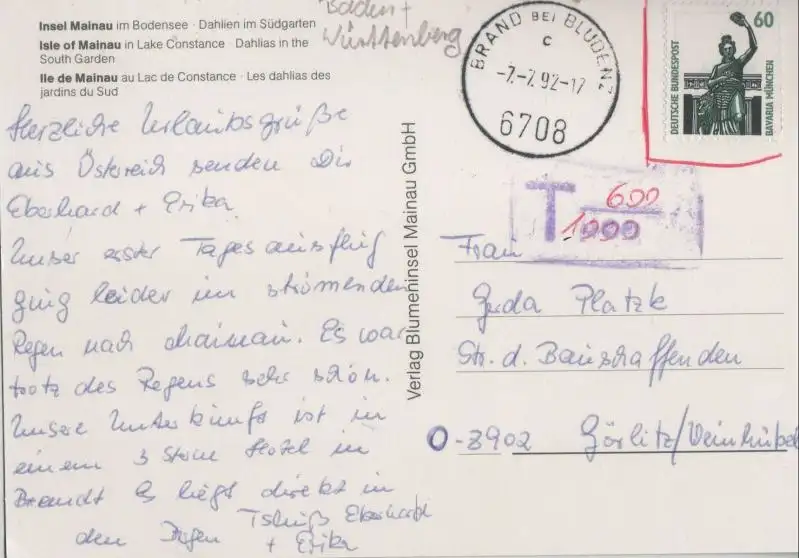 Insel Mainau im Bodensee · Dahlien im Südgarten
Isle of Mainau in Lake Constance · Dahlias in the
South Garden
Ile de Mainau au Lac de Constance · Les dahlias des
jardins du Sud
Baden +
Württenberg
BRAND BEI BLUDENZ
c
-7.-7.92-17
6708
60
DEUTSCHE BUNDESPOST
BAVARIA MÜNCHEN
T 600
1000
Herzliche Urlaubsgrüße
aus Österreich senden Dir
Eberhard + Erika.
Unser erster Tagesausflug
ging leider im strömenden
Regen nach Mainau. Es war
trotz des Regens sehr schön.
Unsere Unterkunft ist in
einem 3 Sterne Hotel in
Brandt Es liegt direkt in
den
Tschüß Eberhard
+ Erika
Verlag Blumeninsel Mainau GmbH
Frau
Platzk
Str. d. Bauschaffenden
O-8902 Görlitz/Weinhübel